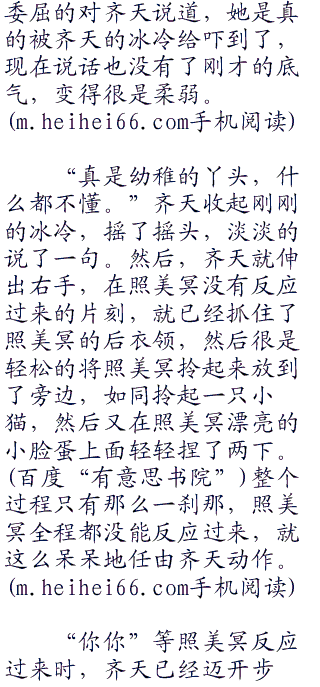 委屈的对齐天说道，她是真
的被齐天的冰冷给吓到了，
现在说话也没有了刚才的底
气，变得很是柔弱。
(m.heihei66.com手机阅读)
“真是幼稚的丫头，什
么都不懂。”齐天收起刚刚
的冰冷，摇了摇头，淡淡的
说了一句。然后，齐天就伸
出右手，在照美冥没有反应
过来的片刻，就已经抓住了
照美冥的后衣领，然后很是
轻松的将照美冥拎起来放到
了旁边，如同拎起一只小
猫，然后又在照美冥漂亮的
小脸蛋上面轻轻捏了两下。
(百度“有意思书院”)整个
过程只有那么一刹那，照美
冥全程都没能反应过来，就
这么呆呆地任由齐天动作。
(m.heihei66.com手机阅读)
“你你”等照美冥反应
过来时，齐天已经迈开步